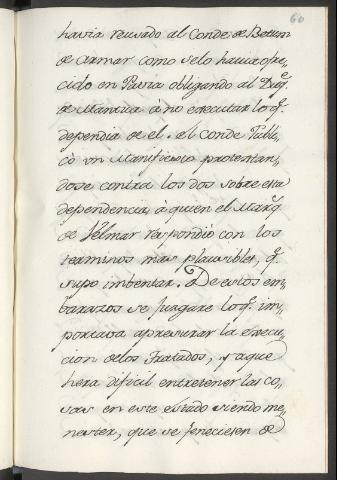 60
havia reusado al Conde de Betun
de armar como selo havia ofre,,
cido en Pavia obligando al Duq.e
de Mantua à no executar lo q.e
dependia de el. el Conde Publi,,
cò un Manifiesto protestan,,
dose contra los dos sobre esta
dependencia, à quien el Marq.s
de Velmar respondiò con los
terminos mas plausibles, q.e
supo imbentar. De estos em,,
barazos se juzgare lo q.e im,,
portava apresurar la execu,,
cion delos Tratados, y aque
hera dificil entretener las co,,
sas en este estado siendo me,,
nester, que se feneciesen de